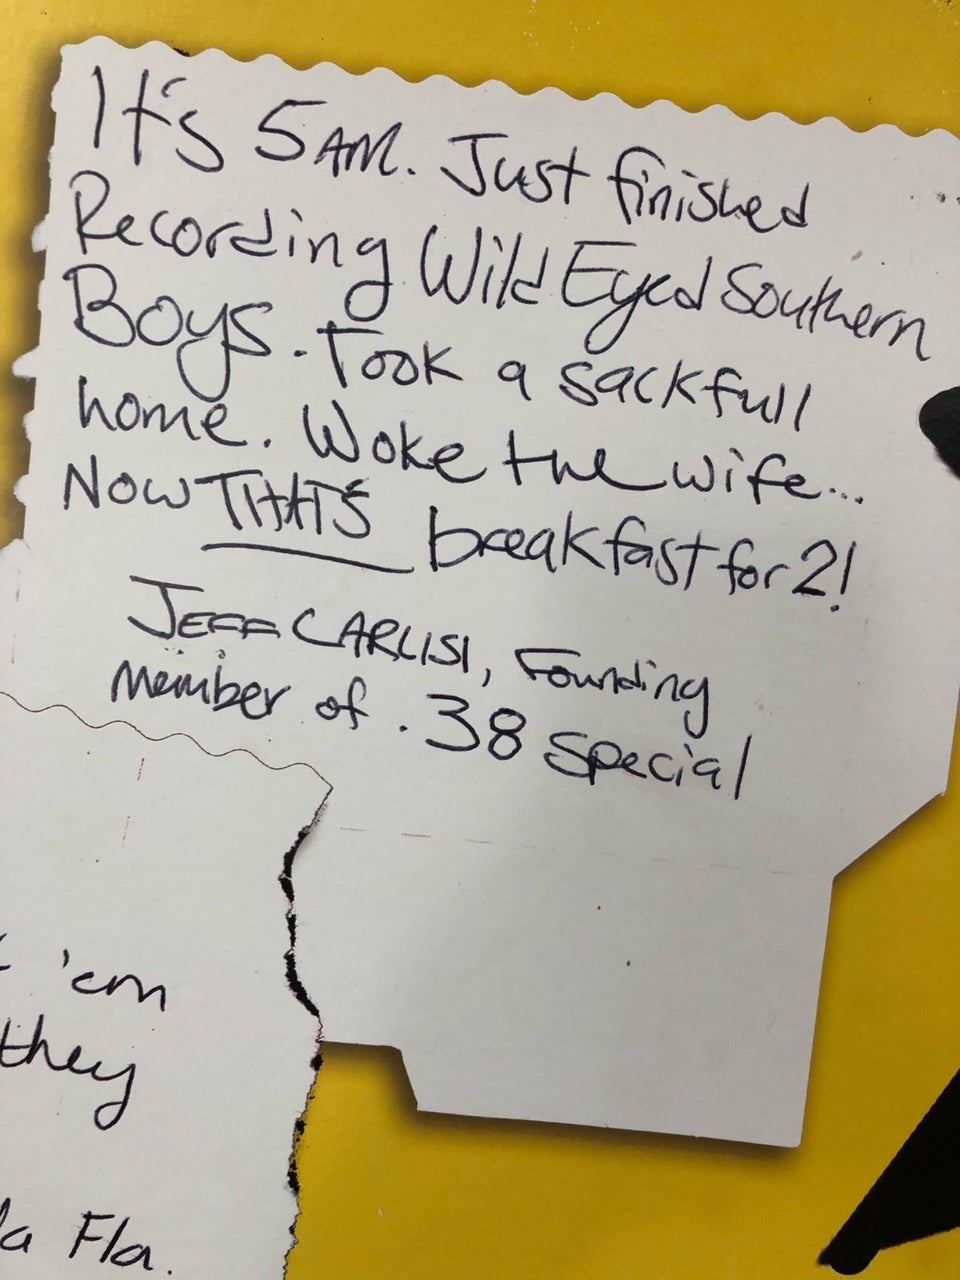 It's 5 AM. Just finished
Recording Wild Eyed Southern
Boys. Took a sackfull
home. Woke the wife...
Now THAT'S breakfast for 2!
JEFF CARLISI, Founding
member of .38 Special
'em
they
la Fla.